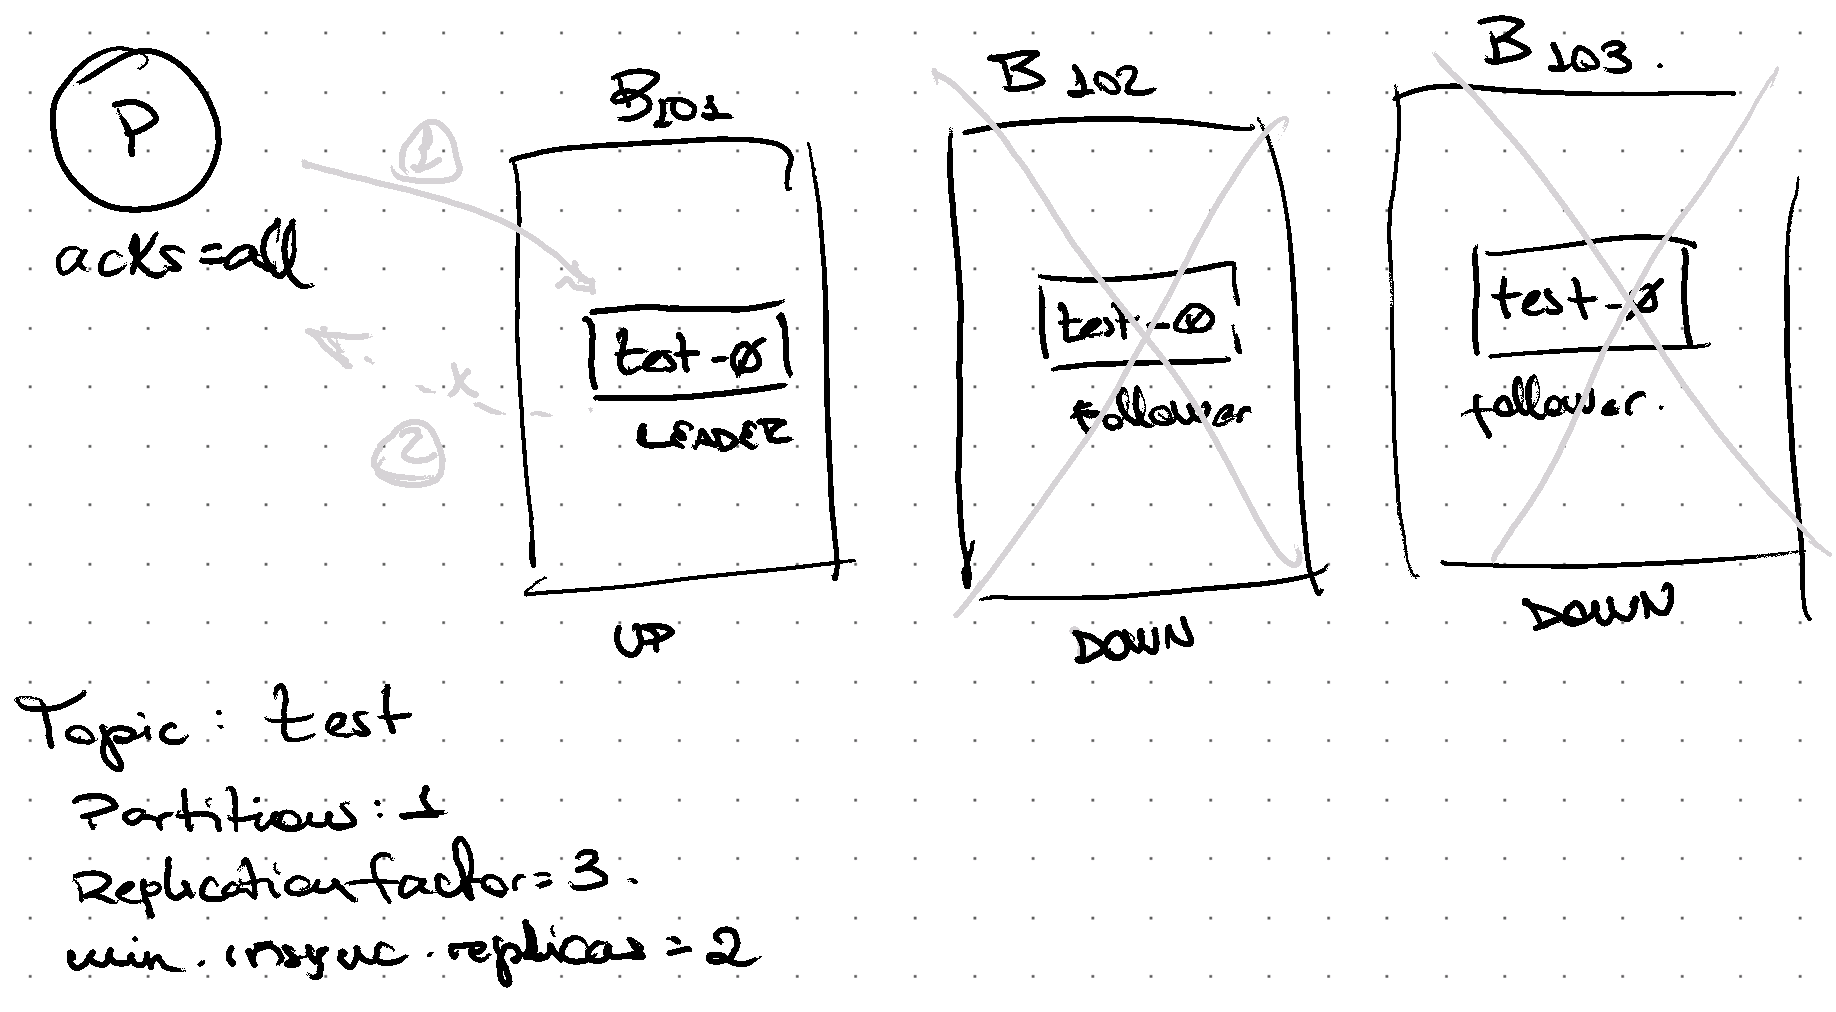 P
acks=all
1
2
B101
test-0
LEADER
UP
B 102
test-0
follower
DOWN
B 103.
test-0
follower.
DOWN
x
Topic: test
Partitions: 1
Replication factor = 3.
min.insync.replicas = 2